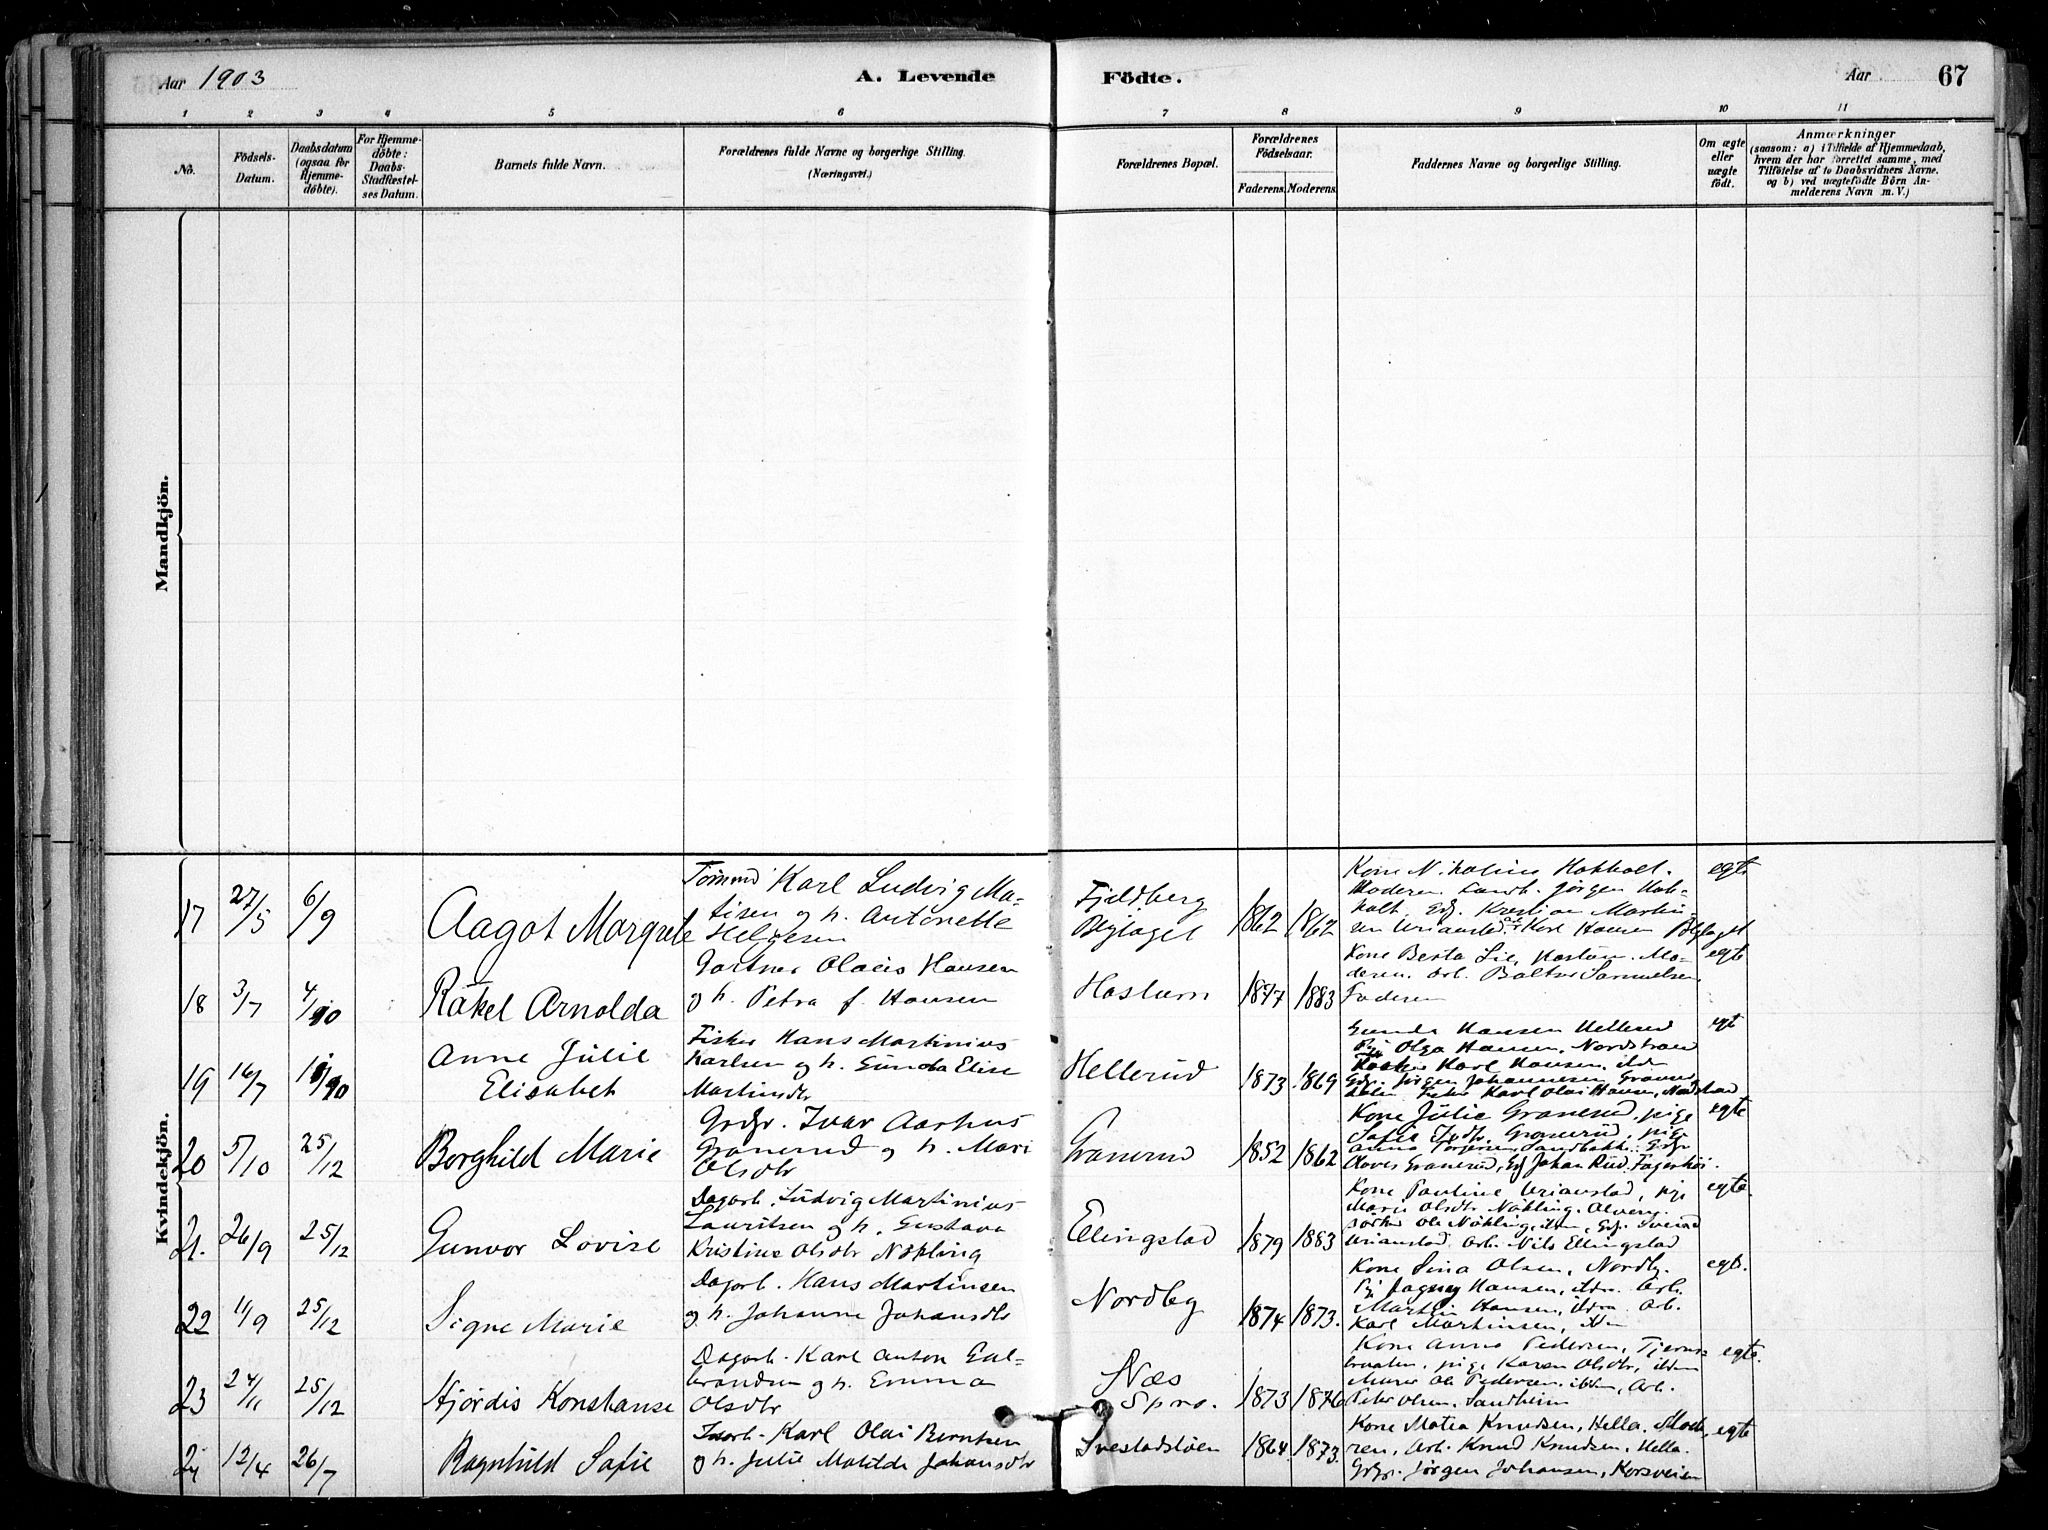 Aar 1903
A. Levende Födte.
Aar
67
1 2 3 4 5 6 7 8 9 10 11
No.
Födsels-
Datum.
Daabsdatum
(ogsaa for
Hjemme-
döbte).
For Hjemme-
döbte:
Daabs-
Stadfæstel-
ses Datum.
Barnets fulde Navn.
Forældrenes fulde Navne og borgerlige Stilling.
(Næringsvei.)
Forældrenes Bopæl.
Forældrenes
Födselsaar.
Faderens. Moderens.
Faddernes Navne og borgerlige Stilling.
Om ægte
eller
uægte
födt.
Anmærkninger
(saasom: a) i Tilfælde af Hjemmedaab,
hvem der har forrettet samme, med
Tilföielse af to Daabsvidners Navne.
og b) ved uægtefödte Börn An-
melderens Navn m. V.)
Mandkjön.
Kvindekjön.
17 27/5 6/9
Aagot Margrete
Karl Ludvig Ma-
tisen og h. Antonette
Helgesen
Fjeldberg
Bylaget
1862 1862
Kone Nikoline
Moderen Landb. Jörgen
Kristian Martin-
sen Urianstad Karl Hansen Bylaget
egte
18 3/7 4/10
Rakel Arnolda
Gartner Olaus Hansen
og h. Petra f. Hansen
Haslum
1877 1883
Kone Berta Lie, Haslum. Mo-
deren. Arb. Samuelsen,
Faderen
egte
19 16/7
Anne Julie
Elisabet
Fisker Hans Martinius
Karlsen og h. Gunda Elise
Martinsdtr
Hellerud
1873 1869
Gunda Hansen Hellerud
Pig Olga Hansen, Nordstrand
Karl Hansen, ilden
Grdbr. Jörgen Johannesen Granerud
Karl Olai Hansen, Nordstrand
egt
20 5/10 25/12
Borghild Marie
Grdbr. Ivar Aarhus
Granerud og h. Mari
Olsdtr
Granerud
1852 1862
Kone Julie Granerud, pige
Granerud, pige
Anna Torgersen, Sandbakk. Grdbr
Granerud, Johan Rud. Fagerhöi.
egte
21. 26/9 25/12
Gunvor Lovise
Dagarb. Ludvig Martinius
Lauritsen og h. Gustava
Kristine Olsdtr Nökling
Ellingstad
1879 1883
Kone Pauline Urianstad, pige
Marie Olsdtr Nökling.
Ole Nökling, ildn,
Urianstad. Arb. Nils Ellingstad
egte.
22 11/9 25/12
Signe Marie
Dagarb. Hans Martinsen
og h. Johanne Johansdtr
Nordby
1874 1873.
Kone Lina Olsen, Nordby.
Pig Dagny Hansen, ildn. Arb.
Martin Hansen, ildn. Arb.
Karl Martinsen, ildn
egte.
23 24/11 25/12
Hjördis Konstanse
Dagarb. Karl Anton Gul-
brandsen og h. Emma
Olsdtr
Næs
Spro.
1873 1876
Kone Anna Pedersen, Tjerns-
braaten, pige Karen Olsdtr, ildn
Ole Pedersen, ildn, Arb.
Peter Olsen, Sandheim
egte.
24 12/4 26/7
Ragnhild Sofie
Karl Olai Berntsen
og h. Julie Matilde Johansdtr
Svestadsløen
1864 1873.
Kone Matea Knudsen, Hella. Mode-
ren, Arb. Knud Knudsen, Hella.
Grdbr. Jörgen Johansen, Korsveien
egte